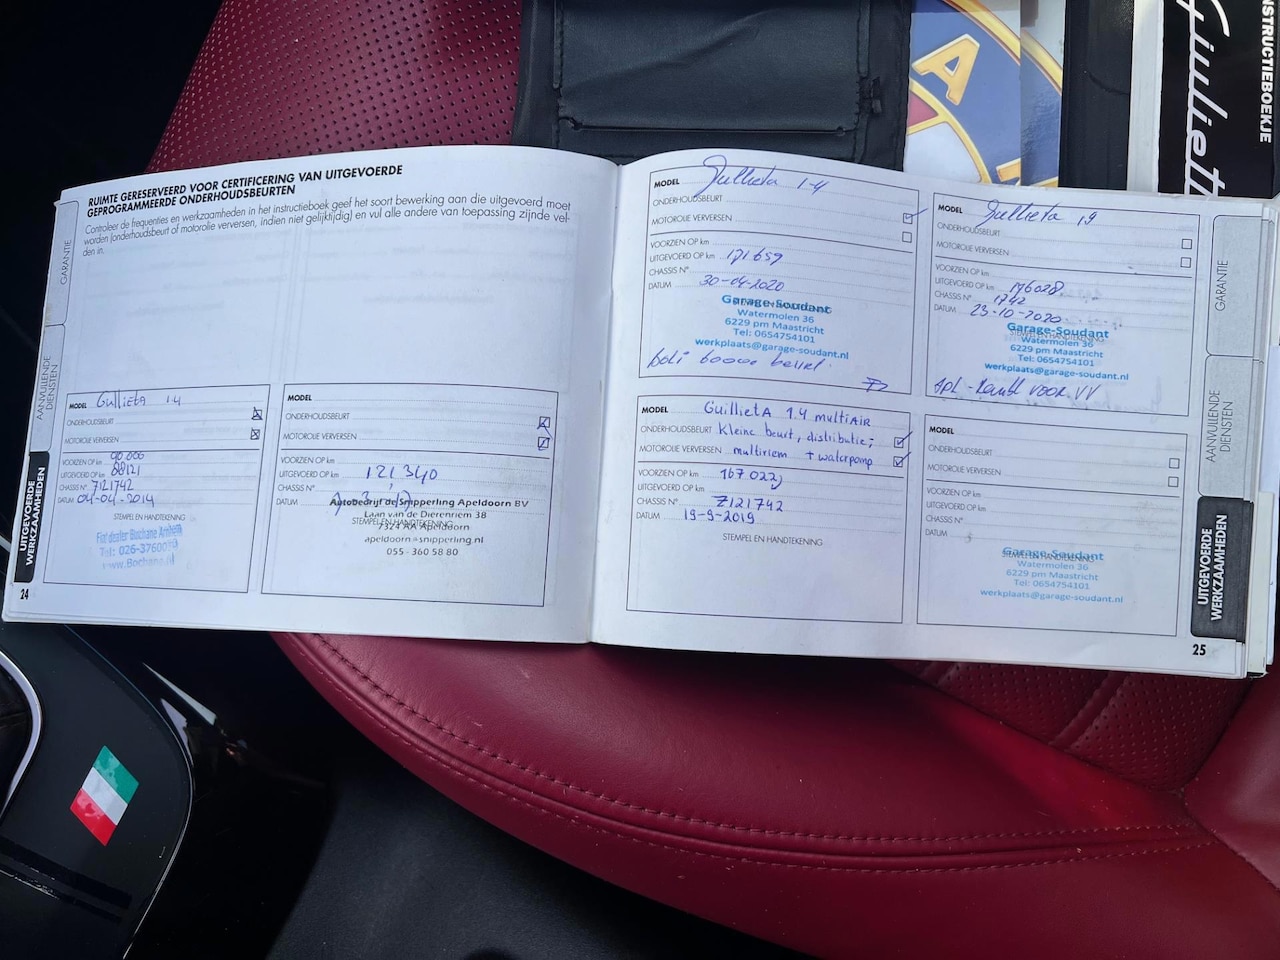 RUIMTE GERESERVEERD VOOR CERTIFICERING VAN UITGEVOERDE
GEPROGRAMMEERDE ONDERHOUDSBEURTEN
Controleer de frequenties en werkzaamheden in het instructieboek geef het soort bewerking aan die uitgevoerd moet
worden (onderhoudsbeurt of motorolie verversen, indien niet gelijktijdig) en vul alle andere van toepassing zijnde vel-
den in.
GARANTIE
AANVULLENDE
DIENSTEN
UITGEVOERDE
WERKZAAMHEDEN
MODEL GullietA 1.4
ONDERHOUDSBEURT
MOTOROLIE VERVERSEN
VOORZIEN OP km 90 000
UITGEVOERD OP km 88121
CHASSIS N° 7121742
DATUM 04-04-2014
STEMPEL EN HANDTEKENING
Fiat dealer Bochane Arnhem
Tel: 026-
www.Bochane.nl
24
MODEL
ONDERHOUDSBEURT
MOTOROLIE VERVERSEN
VOORZIEN OP km
UITGEVOERD OP km 121340
CHASSIS N°
DATUM
Autobedrijf de Snipperling Apeldoorn BV
Laan van de Dierenriem 38
STEMPEL EN HANDTEKENING
7324 AA Apeldoorn
apeldoorn@snipperling.nl
055 - 360 58 80
MODEL Jullieta 1-4
ONDERHOUDSBEURT
MOTOROLIE VERVERSEN
VOORZIEN OP km
UITGEVOERD OP km 171659
CHASSIS N°
DATUM 30-04-2020
STEMPEL EN HANDTEKENING
Garage-Soudant
Watermolen 36
6229 pm Maastricht
Tel: 0654754101
werkplaats@garage-soudant.nl
MODEL Jullieta 1,9
ONDERHOUDSBEURT
MOTOROLIE VERVERSEN
VOORZIEN OP km
UITGEVOERD OP km 176028
CHASSIS N° 1742
DATUM 23-10-2020
Garage-Soudant
STEMPEL EN HANDTEKENING
Watermolen 36
6229 pm Maastricht
Tel: 0654754101
werkplaats@garage-soudant.nl
VOOR VV
MODEL GuillietA 1.4 multiAIR
ONDERHOUDSBEURT kleine beurt, distributie,
MOTOROLIE VERVERSEN multiriem + waterpomp
VOORZIEN OP km 167022
UITGEVOERD OP km
CHASSIS N° 7121742
DATUM 19-9-2019
STEMPEL EN HANDTEKENING
MODEL
ONDERHOUDSBEURT
MOTOROLIE VERVERSEN
VOORZIEN OP km
UITGEVOERD OP km
CHASSIS N°
DATUM
Garage-Soudant
STEMPEL EN HANDTEKENING
Watermolen 36
6229 pm Maastricht
Tel: 0654754101
werkplaats@garage-soudant.nl
GARANTIE
AANVULLENDE
DIENSTEN
UITGEVOERDE
WERKZAAMHEDEN
25
A
Giuliett
NSTRUCTIEBOEKJE